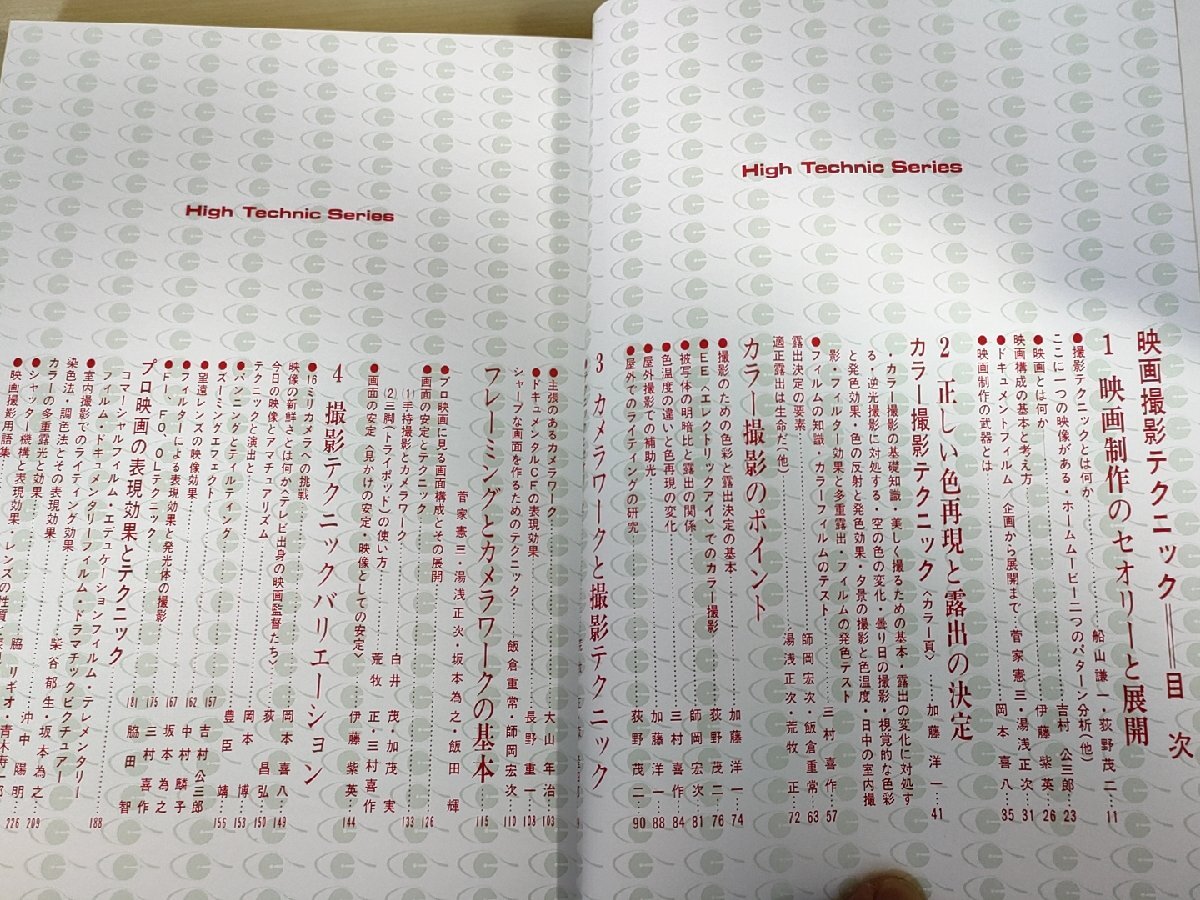 High Technic Series
映画撮影テクニック══目次
1 映画制作のセオリーと展開
●撮影テクニックとは何か…………船山謙一・荻野茂二…11
ここに一つの映像がある・ホームムービー二つのパターン分析〈他〉
●映画とは何か…………吉村公三郎…23
映画構成の基本と考え方…………伊藤紫英…26
●ドキュメントフィルム 企画から展開まで…菅家憲三・湯浅正次…31
●映画制作の武器とは…………岡本喜八…35
2 正しい色再現と露出の決定
カラー撮影テクニック〈カラー頁〉…………加藤洋一…41
・カラー撮影の基礎知識・美しく撮るための基本・露出の変化に対処す
る・逆光撮影に対処する・空の色の変化・曇り日の撮影・視覚的な色彩
と発色効果・色の反射と発色効果・夕景の撮影と色温度・日中の室内撮
影・フィルター効果と多重露出・フィルムの発色テスト
●フィルムの知識・カラーフィルムのテスト…………三村喜作…57
露出決定の要素…………師岡宏次・飯倉重常…63
適正露出は生命だ〈他〉…………湯浅正次・荒牧正…72
カラー撮影のポイント
●撮影のための色彩と露出決定の基本…………加藤洋一…74
●EE〈エレクトリックアイ〉でのカラー撮影…………荻野茂二…76
被写体の明暗比と露出の関係…………師岡宏次…81
●色温度の違いと色再現の変化…………三村喜作…84
●屋外撮影での補助光…………加藤洋一…88
●屋外でのライティングの研究…………荻野茂二…90
3 カメラワークと撮影テクニック
High Technic Series
●主張のあるカメラワーク…………大山年治…103
●ドキュメンタルCFの表現効果…………長野重一…108
シャープな画面を作るためのテクニック…………飯倉重常・師岡宏次…110
フレーミングとカメラワークの基本…………115
菅家憲三・湯浅正次・坂本為之・飯田輝
●プロ映画に見る画面構成とその展開
●画面の安定とテクニック…………126
(1)手持撮影とカメラワーク…………白井茂・加茂実…133
(2)三脚〈トライポッド〉の使い方…………荒牧正・三村喜作
●画面の安定〈見かけの安定・映像としての安定〉…………伊藤紫英…144
4 撮影テクニックバリエーション
●16ミリカメラへの挑戦
映像の新鮮さとは何か〈テレビ出身の映画監督たち〉…………岡本喜八…149
今日の映像とアマチュアリズム…………荻昌弘…150
テクニックと演出と…………岡本博…153
●パンニングとティルティング…………豊臣靖…155
●ズーミングエフェクト…………157
●望遠レンズの映像効果…………吉村公三郎
●フィルターによる表現効果と発光体の撮影…………中村麟子…162
●FI、FO、OLテクニック…………坂本為之…167
三村喜作…175
プロ映画の表現効果とテクニック…………脇田智…181
コマーシャルフィルム・テレメンタリー
フィルム・ドキュメンタリーフィルム・エデュケーションフィルム・ドラマチックピクチュアー
●室内撮影でのライティング効果…………188
染色法・調色法とその表現効果
カメラの多重露光と効果…………柴谷郁生・坂本為之
●シャッター機構と表現効果…………沖中陽明…209
●映画撮影用語集